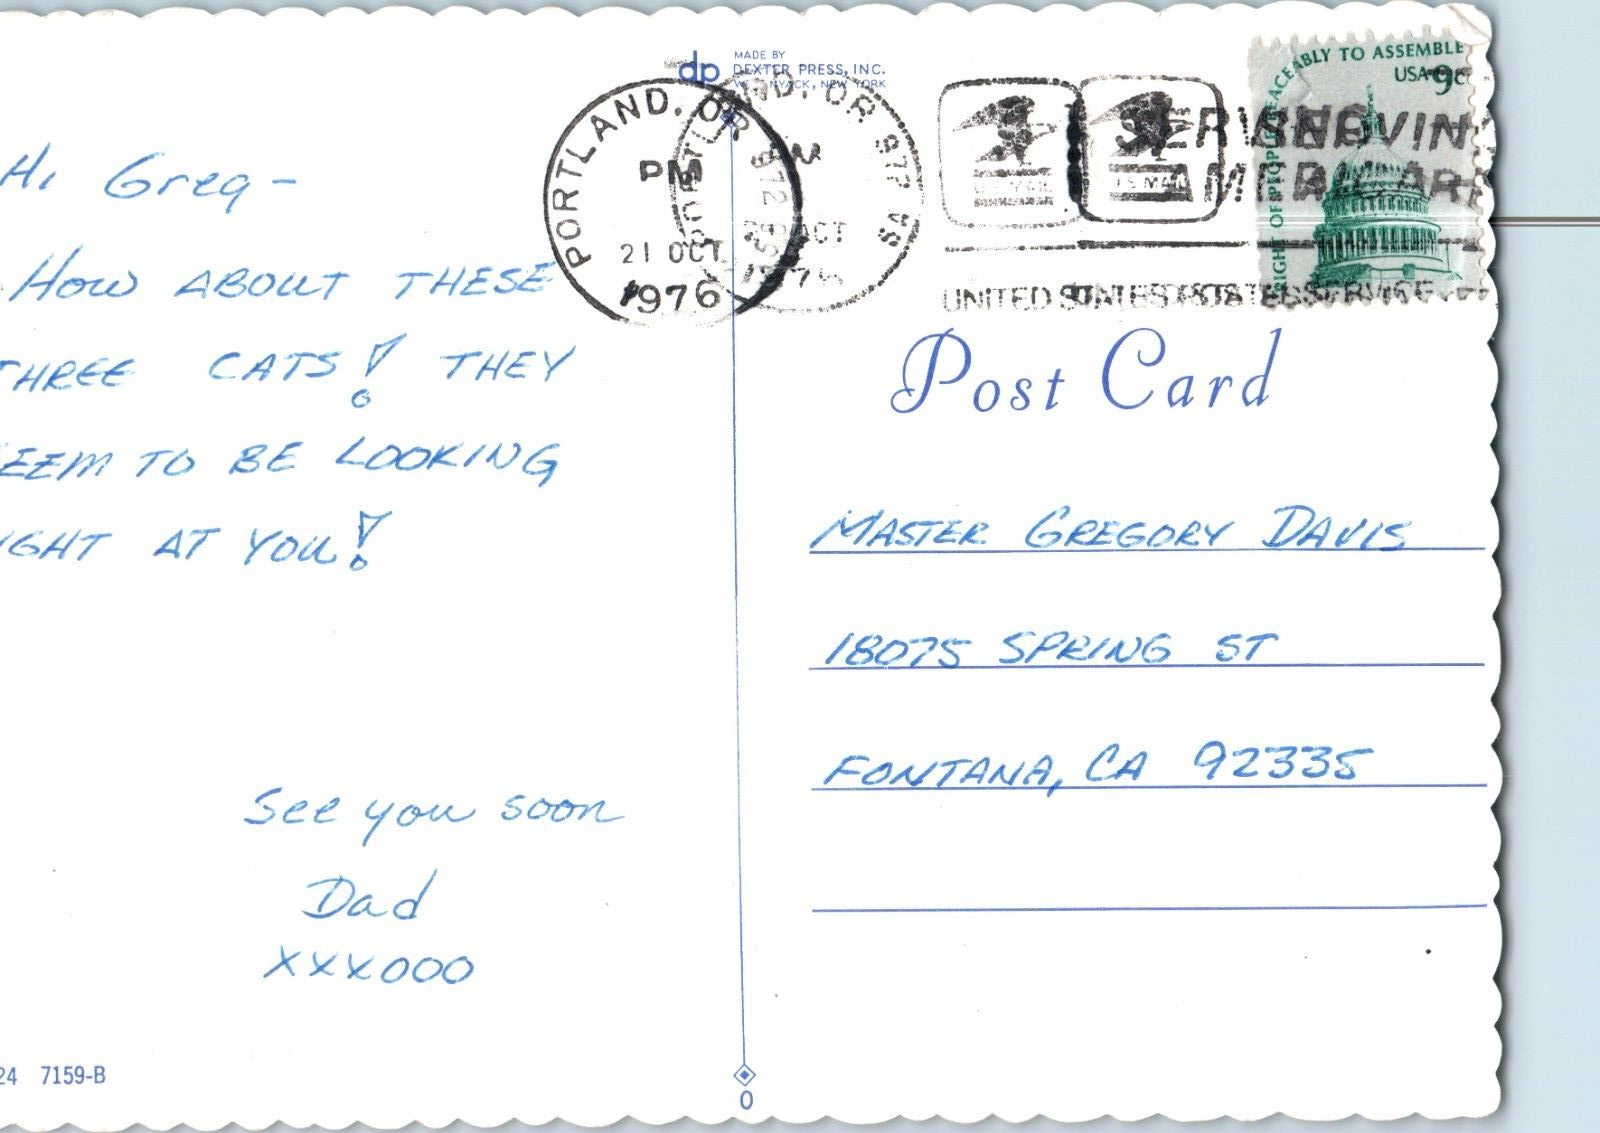 Hi Greg-
How ABOUT THESE
THREE CATS! THEY
SEEM TO BE LOOKING
IGHT AT YOU!
See you soon
Dad
XXXOOO
24 7159-B
dp
MADE BY
DEXTER PRESS, INC.
WEST NYACK, NEW YORK
PORTLAND, OR
PM
21 OCT
1976
U.S. MAIL
UNITED STATES
RIGHT OF PEOPLE PEACEABLY TO ASSEMBLE
USA 9c
Post Card
MASTER GREGORY DAVIS
18075 SPRING ST
FONTANA, CA 92335
0